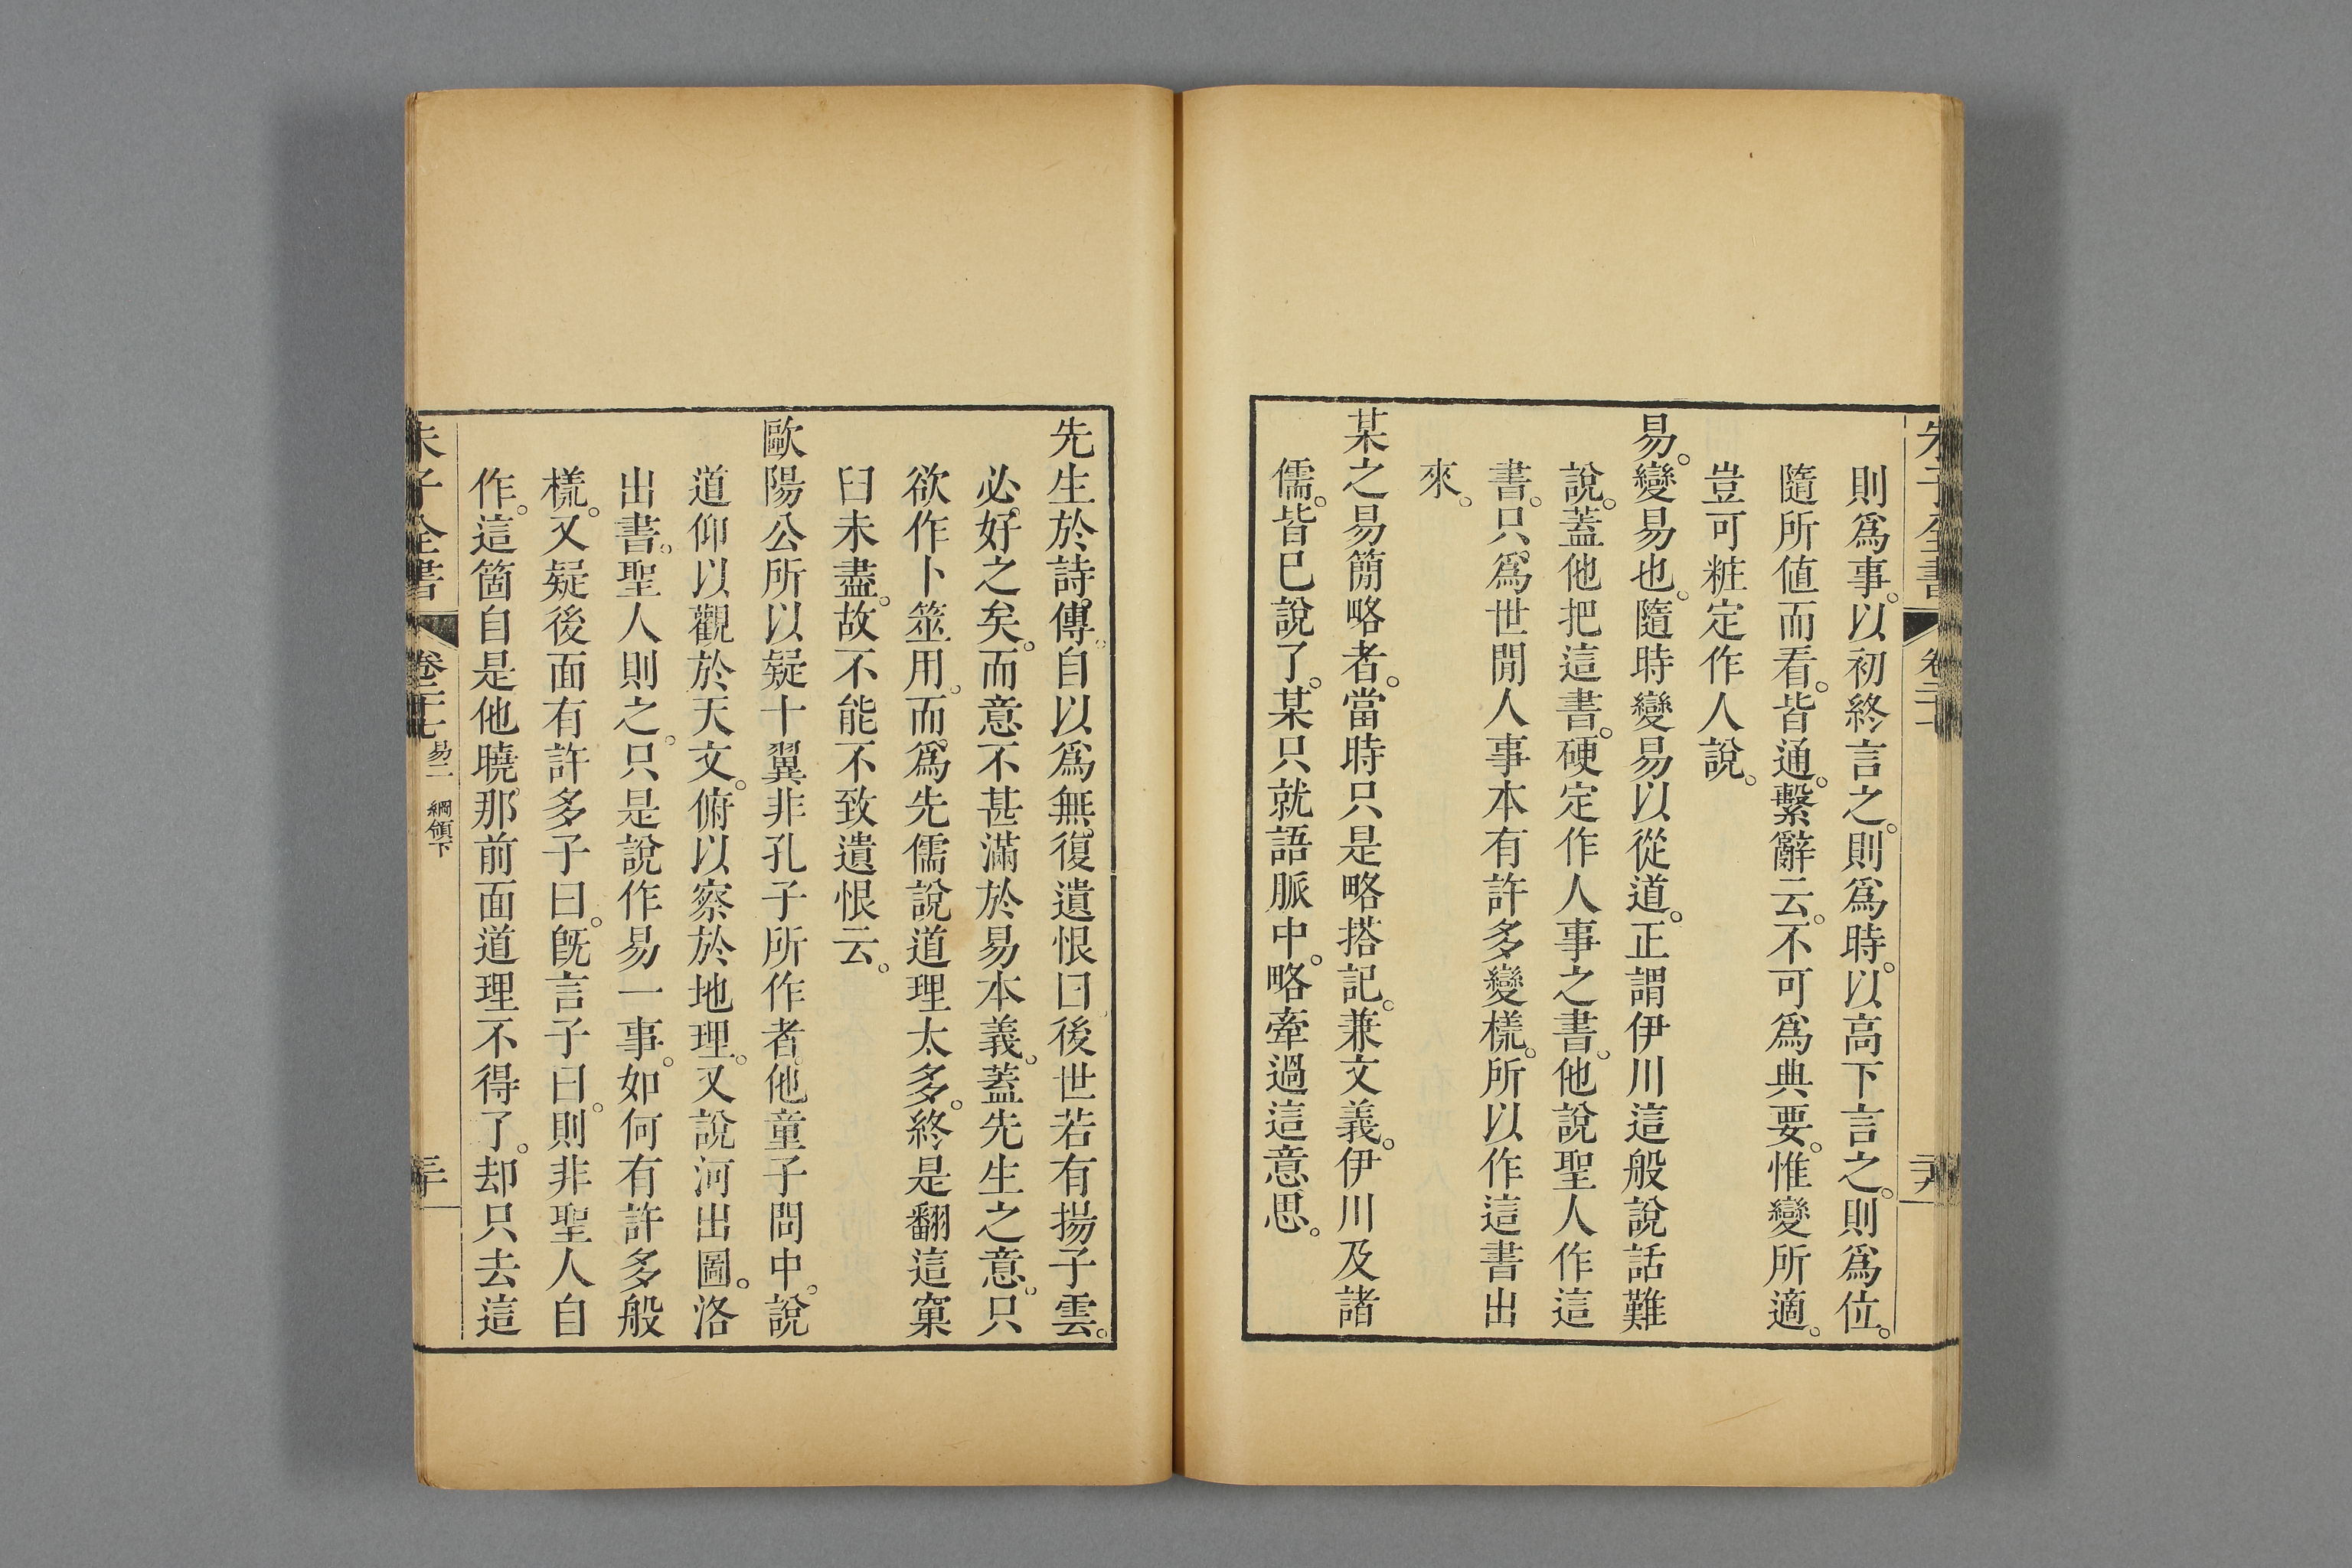 朱子全書 卷二十七 二十九
則爲事。以初終言之。則爲時。以高下言之。則爲位。
隨所值而看。皆通。繫辭云。不可爲典要。惟變所適。
豈可粧定作人說。
易。變易也。隨時變易以從道。正謂伊川這般說話難
說。蓋他把這書。硬定作人事之書。他說聖人作這
書。只爲世閒人事本有許多變㨾。所以作這書出
來。
某之易簡略者。當時只是略搭記。兼文義。伊川及諸
儒。皆已說了。某只就語脈中。略牽過這意思。
先生於詩傳。自以爲無復遺恨曰。後世若有揚子雲。
必好之矣。而意不甚滿於易本義。蓋先生之意。只
欲作卜筮用。而爲先儒說道理太多。終是翻這窠
臼未盡。故不能不致遺恨云。
歐陽公所以疑十翼非孔子所作者。他童子問中。說
道仰以觀於天文。俯以察於地理。又說河出圖。洛
出書。聖人則之。只是說作易一事。如何有許多般
㨾。又疑後面有許多子曰。旣言子曰。則非聖人自
作。這箇自是他曉那前面道理不得了。却只去這
朱子全書 卷二十七 易二 綱領下 三十